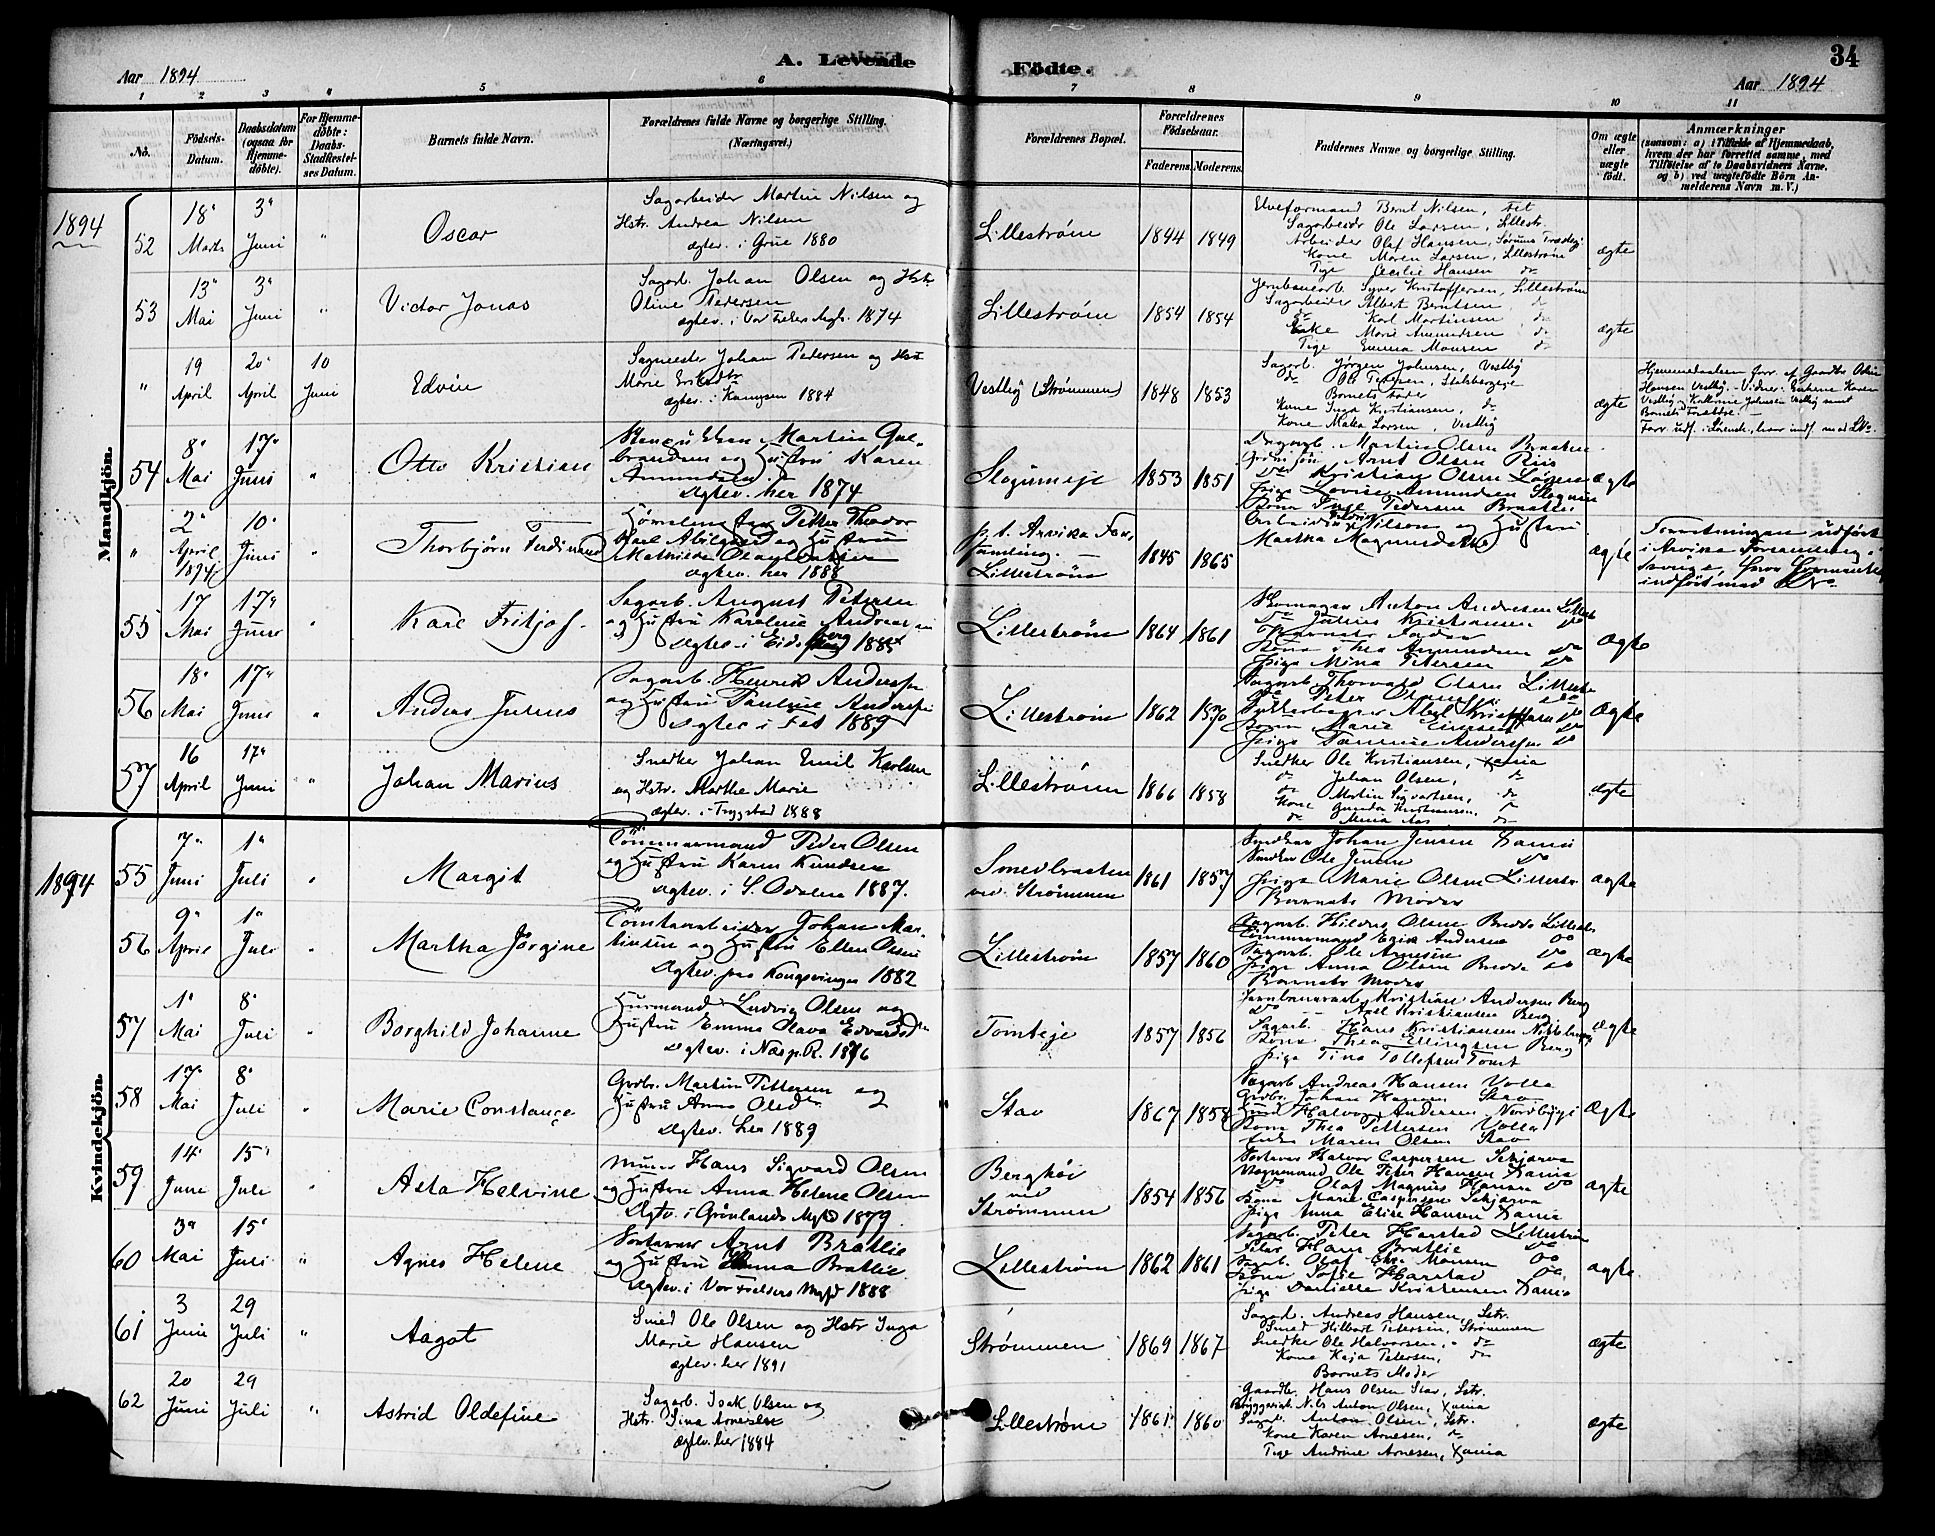 Aar 1894
A. Levende
Födte.
34
Aar 1894
1 2 3 4 5 6 7 8 9 10 11
No.
Födsels-
Datum.
Daabsdatum
(ogsaa for
Hjemme-
döbte).
For Hjemme-
döbte:
Daabs-
Stadfæstel-
ses Datum.
Barnets fulde Navn.
Forældrenes fulde Navne og borgerlige Stilling.
(Næringsvei.)
Forældrenes Bopæl.
Forældrenes
Födselsaar.
Faderens. Moderens.
Faddernes Navne og borgerlige Stilling.
Om ægte
eller
uægte
födt.
Anmærkninger
(saasom: a) i Tilfælde af Hjemmedaab,
hvem der har forrettet samme, med
Tilföielse af to Daabsvidners Navne,
og b) ved uægtefödte Börn An-
melderens Navn m. V.)
Mandkjön.
1894
52
18" Marts
3" Juni
"
Oscar
Sagarbeider Martin Nilsen og
Hstr. Andrea Nilsen
ægtev. i Grue 1880
Lillestrøm
1844 1849
Elveformand Bernt Nilsen, Fet
Sagarbeider Ole Larsen, Lillestr.
Arbeider Olaf Hansen, Sørums
Kone Maren Larsen, Lillestrøm
Pige Cecilie Hansen do
ægte
53
13" Mai
3" Juni
"
Victor Jonas
Sagarb. Johan Olsen og Hstr.
Oline Pedersen
ægtev. i Vor Frelsers Mgh. 1874
Lillestrøm
1854 1854
Jernbanearb. Syver Kristoffersen, Lillestrøm
Sagarbeider Albert Berntsen do
do Karl Martinsen do
Enke Marie Amundsen do
Pige Emma Monsen do
ægte
"
19 April
20" April
10 Juni
Edvin
Sagmester Johan Pedersen og Hst
Marie Eriksdtr
ægtev. i 1884
Vestby (Strømmen)
1848 1853
Sagarb. Jørgen Johnsen, Vestby
do Ole Pedersen, Stalsbergeje
Barnets Fader
Kone Inga Kristiansen, do
Kone Maka Larsen, Vestby
ægte
Hjemmedaaben forr. af Gaardbr. Oskar
Hansen Vestby. Vidner: Enkerne Karen
Vestby og Kathrine Johnsen Vestby samt
Barnets Forældre. —
54
8" Mai
17" Juni
"
Otto Kristian
Martin Gul-
brandsen og Hustru Karen
Amundsen
Ægtev. her 1874
Slogumeje
1853 1851
Dagarb. Martin Olsen Braaten
Arnt Olsen Riis
do Kristian Olsen
Pige Lovise Amundsen Slogum
Kone Inge Pedersen Braaten
ægte
"
2" April 1894
10" Juni
"
Thorbjørn Ferdinand
Petter Theodor
Karl Abilgaard og Hustru
Mathilde
Ægtev. her 1888
p.t. Arvika For-
samling. —
Lillestrøm
1845 1865
Arbeider Nilson og Hustru
Martha Magnusdatter
ægte
Forretningen udført
i Arvika Forsamling,
Sverige, hvor
indført med
55
17 Mai
17" Juni
"
Karl Fritjof
Sagarb. August Petersen
og Hustru Karoline Andreassen
Ægtev. i Eidsberg 1885
Lillestrøm
1864 1861
Skomager Anton Andresen Lillest
do Julius Kristiansen do
Barnets Fader
Kone Thea Amundsen do
Pige Mina Petersen do
Ægte
56
18" Mai
17" Juni
"
Anders Julius
Sagarb. Henrik Andersen
og Hustru Pauline Andersen
Ægtev. i Fet 1889
Lillestrøm
1862 1870
Sagarb. Thorvald Olsen Lillestr
do Peter Olsen do
Abel Kristoffersen do
Kone Marie do
Pige Andersen do
Ægte
57
16 April
17" Juni
"
Johan Marius
Snedker Johan Emil Karlsen
og Hstr. Marthe Marie
Ægtev. i Trygstad 1888
Lillestrøm
1866 1858
Snedker Ole Kristiansen, Xania
do Johan Olsen, do
do Martin Sigvartsen, do
Kone Gunda Kristiansen,
do Mina Aas do
ægte
Kvindekjön.
1894
55
7" Juni
1" Juli
"
Margit
Tömmermand Peder Olsen
og Hustru Karen Knudsen
Ægtev. i S. Odalen 1887.
Smedbraaten
ved Strømmen
1861 1857
Snedker Johan Jensen Xania
Snedker Ole Jensen do
Pige Marie Olsen Lillestr
Barnets Moder
ægte
56
9" April
1" Juli
"
Martha Jörgine
Tömtearbeider Johan Mar-
tinsen og Hustru Ellen Olsen
Ægtev. paa Kongsvinger 1882
Lillestrøm
1857 1860
Sagarb. Hildus Olsen Bredde Lillestr
Tömmermand Erik Andersen do
Sagarb. Ole Arnesen do
Pige Anna Olsen Bredde do
Barnets Moder
Ægte
57
1" Mai
8" Juli
"
Borghild Johanne
Husmand Ludvig Olsen og
Hustru Emma Olava Edvardsdtr
Ægtev. i Næs p. R. 1876
Tomteje
1857 1856
Jernbanearb. Kristian Andersen Berg
do Axel Kristiansen Berg
Sagarb. Hans Kristiansen Nitteberg
Kone Thea Ellingsen Berg
Pige Tina Tollefsen Tomt
Ægte
58
17" Mai
8" Juli
"
Marie Constance
Grdbr. Martin Pettersen og
Hustru Anne Olsdtr
Ægtev. her 1889
Stav
1867 1858
Sagarb. Andreas Hansen Volla
Grdbr. Johan Hansen Stav
Husm Halvor Andersen Nordbyeje
Kone Thea Pettersen Volla
Enke Maren Olsen Stav
Ægte
59
14" Juni
15" Juli
"
Asta Helvine
Murer Hans Sigvard Olsen
og Hustru Anna Helene Olsen
Ægtv. i Grønlands Mgd 1879.
Berghöi
ved
Strømmen
1854 1856
Sorterer Halvor Caspersen Skjærva
Vognmand Ole Peter Hansen Xania
do Olaf Magnus Hansen do
Kone Marie Caspersen Skjærva
Pige Anna Elise Hansen Xania
ægte
60
3" Mai
15" Juli
"
Agnes Helene
Sorterer Arnt Bratlie
og Hustru Anna Bratlie
Ægtev. i Vor Frelsers Mgd 1888
Lillestrøm
1862 1861
Sagarb. Peter Harstad Lillestrøm
Hans Bratlie do
Sagarb. Olaf Chr. Monsen do
Kone Sofie Harstad do
Pige Danielle Kristensen Xania
ægte.
61
3 Juni
29 Juli
"
Aagot
Smed Ole Olsen og Hstr Inga
Marie Hansen
ægtev. her 1891
Strømmen
1869 1867
Sagarb. Andreas Hansen, Lstr.
Smed Hilbart Petersen, Strømmen
Snedker Ole Halvorsen, do
Kone Kaja Petersen, do
Barnets Moder
ægte
62
20 Juni
29 Juli
"
Astrid Oldefine
Sagarb. Isak Olsen og
Hstr. Sina Arnesen
ægtev. her 1884
Lillestrøm
1861 1860
Gaardbr. Hans Olsen Stav, Lstr.
Bryggeriarb. Nils Anton Olsen, Xania
Sagarb. Anton Olsen, Lstr.
Kone Karen Arnesen, do
Pige Andrine Arnesen, Xania
ægte